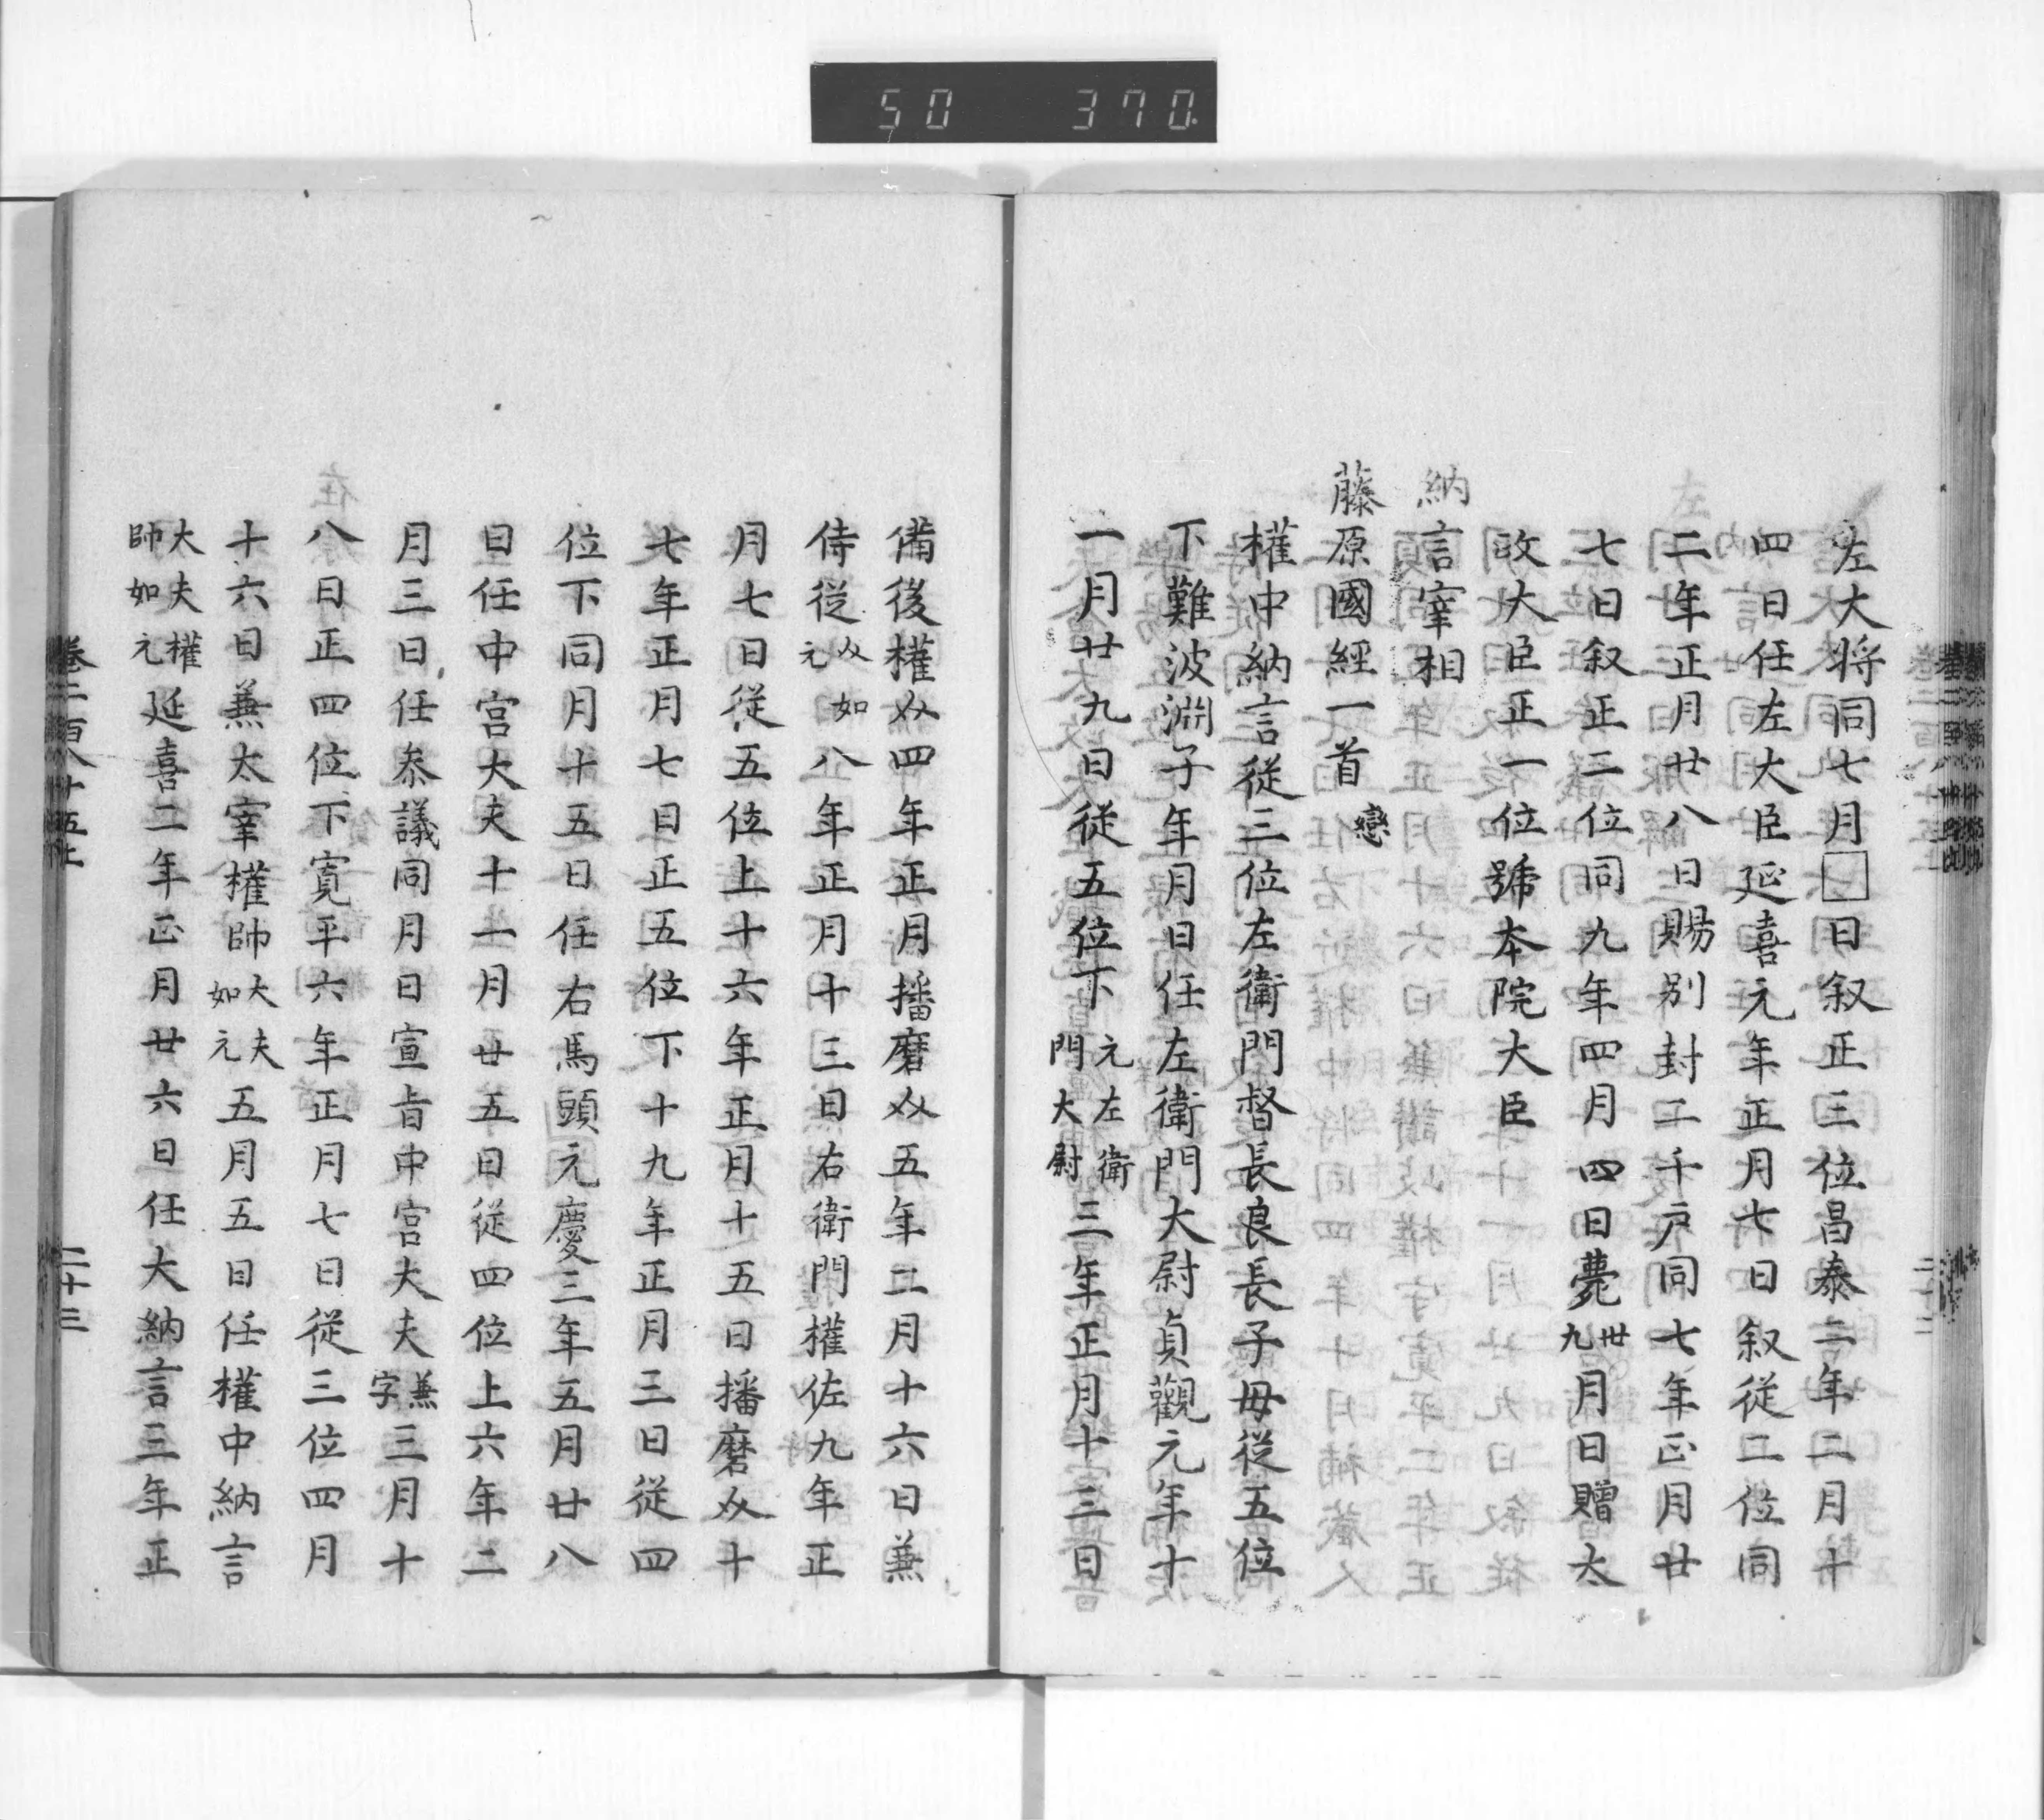 50 370.
左大将同七月□日叙正三位昌泰二年二月十
四日任左大臣延喜元年正月七日叙従二位同
二年正月廿八日賜別封二千戸同七年正月廿
七日叙正二位同九年四月四日薨卅九月日贈太
政大臣正一位號本院大臣
納言宰相
藤原國經一首戀
權中納言従三位左衛門督長良長子母従五位
下難波淵子年月日任左衛門大尉貞觀元年十
一月廿九日従五位下元左衛門大尉三年正月十三日
備後權介四年正月播磨介五年二月十六日兼
侍従介如元八年正月十三日右衛門權佐九年正
月七日従五位上十六年正月十五日播磨介十
七年正月七日正五位下十九年正月三日従四
位下同月十五日任右馬頭元慶三年五月廿八
日任中宮大夫十一月廿五日従四位上六年二
月三日任参議同月日宣旨中宮大夫兼字三月十
八日正四位下寛平六年正月七日従三位四月
十六日兼太宰權帥大夫如元五月五日任權中納言
大夫權帥如元延喜二年正月廿六日任大納言三年正
巻二百八十五上 二十三